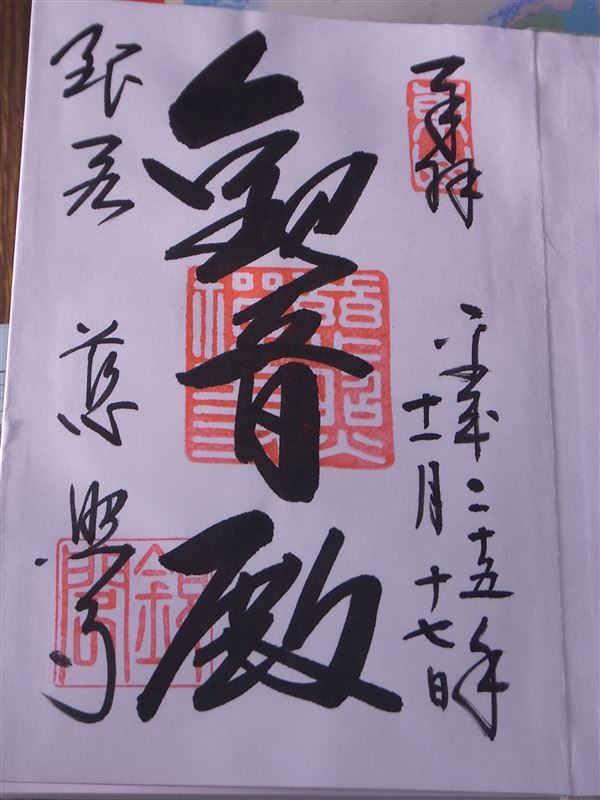 奉拝
平成二十五年
十一月十七日
観音殿
銀閣 慈照寺
銀閣